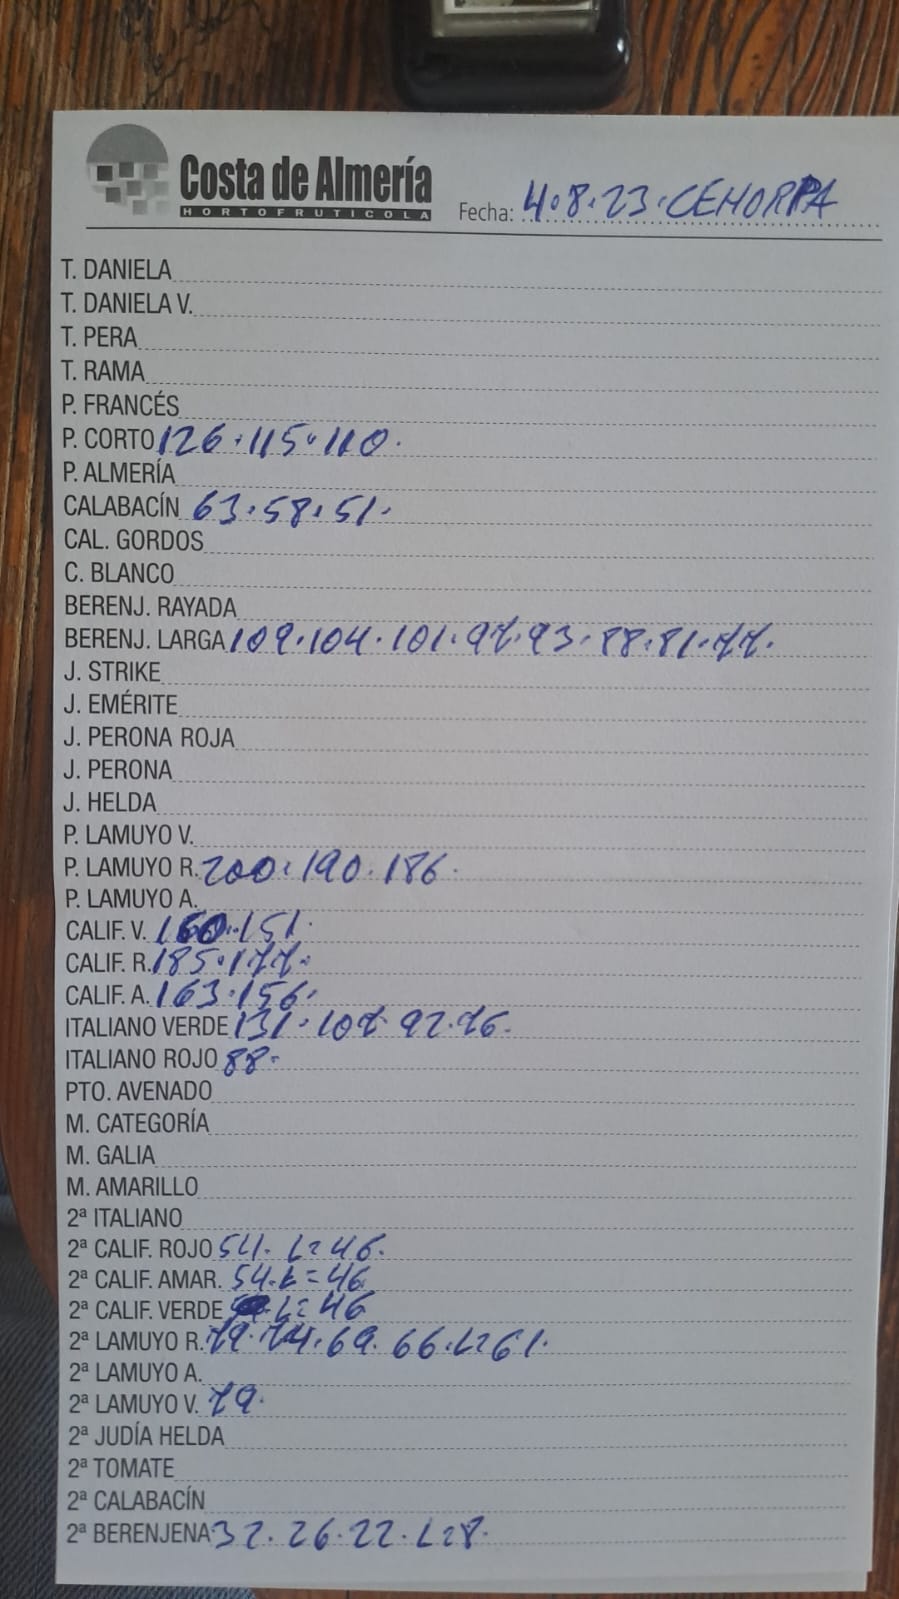 Costa de Almería
HORTOFRUTICOLA
Fecha: 4.8.23.CEHORPA
T. DANIELA
T. DANIELA V.
T. PERA
T. RAMA
P. FRANCÉS
P. CORTO 126.115.110.
P. ALMERÍA
CALABACÍN 63.58.51.
CAL. GORDOS
C. BLANCO
BERENJ. RAYADA
BERENJ. LARGA 109.104.101.97.93.88.81.77.
J. STRIKE
J. EMÉRITE
J. PERONA ROJA
J. PERONA
J. HELDA
P. LAMUYO V.
P. LAMUYO R. 200.190.186.
P. LAMUYO A.
CALIF. V. 160.151.
CALIF. R. 185.177.
CALIF. A. 163.156.
ITALIANO VERDE 131.107.92.76.
ITALIANO ROJO 88.
PTO. AVENADO
M. CATEGORÍA
M. GALIA
M. AMARILLO
2ª ITALIANO
2ª CALIF. ROJO 54. L=46.
2ª CALIF. AMAR. 54.L=46
2ª CALIF. VERDE L=46
2ª LAMUYO R. 79.74.69.66.L=61.
2ª LAMUYO A.
2ª LAMUYO V. 79.
2ª JUDÍA HELDA
2ª TOMATE
2ª CALABACÍN
2ª BERENJENA 32.26.22.L=8.